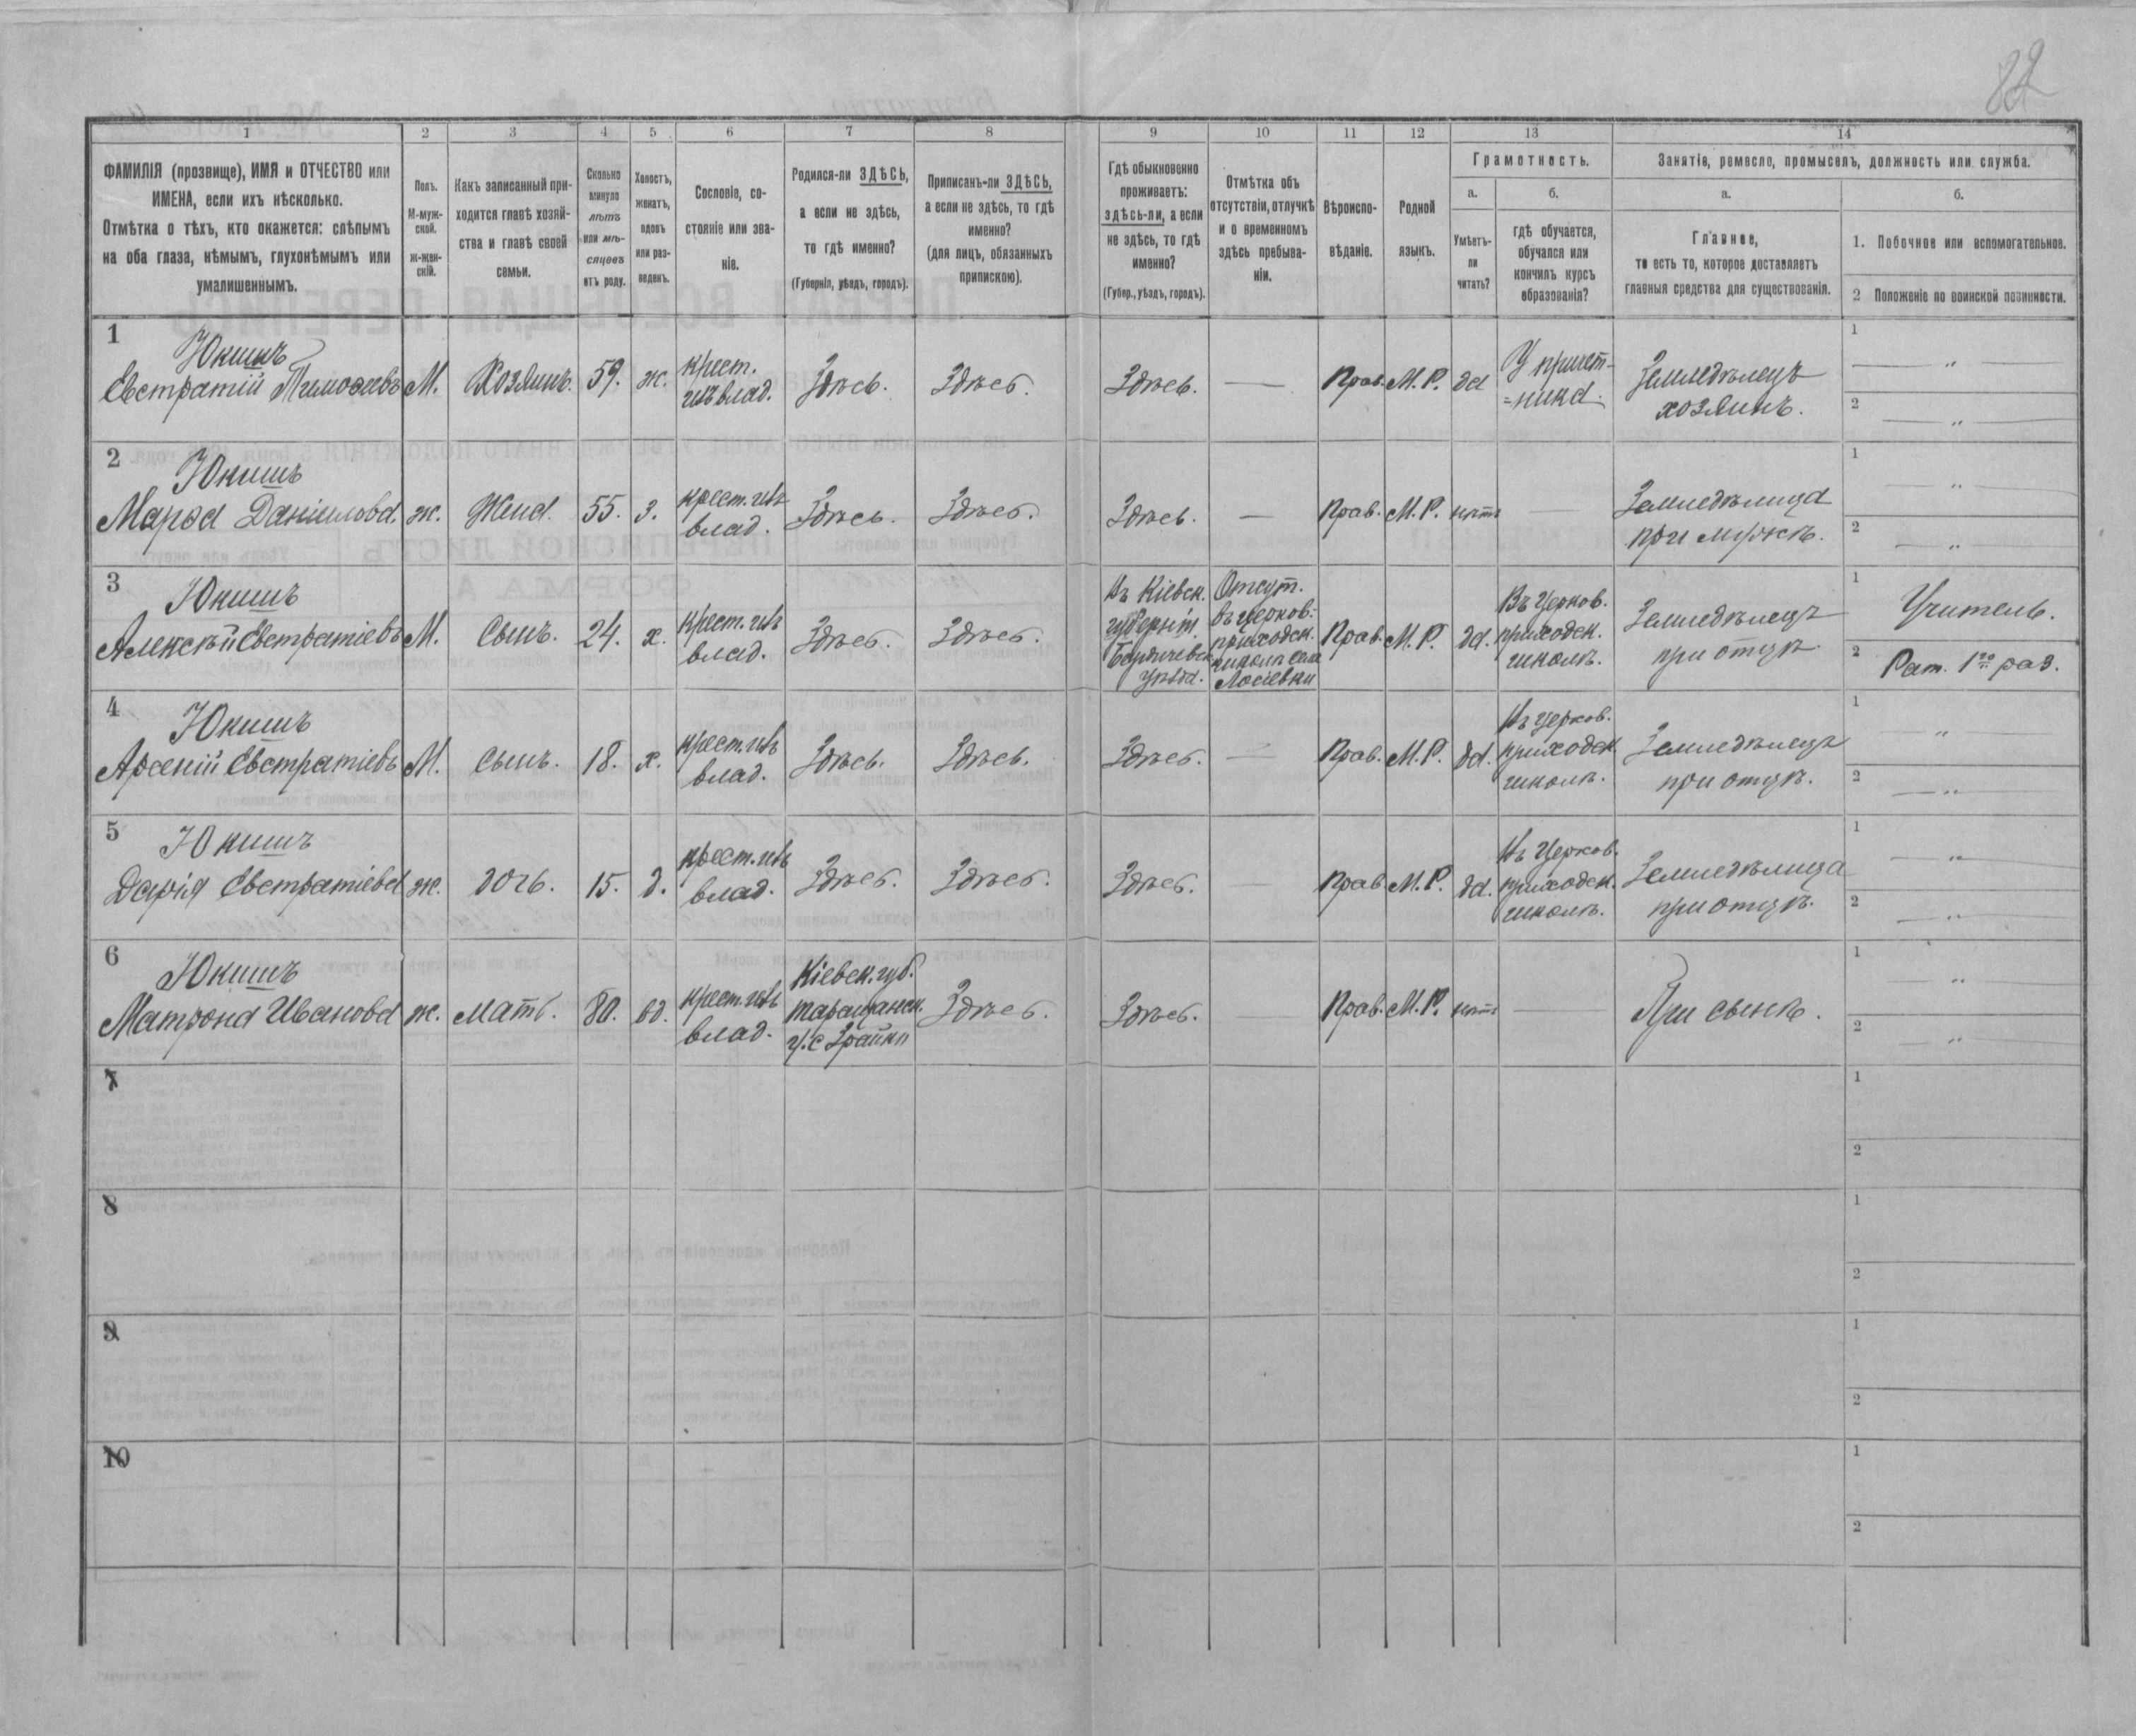 82
1 2 3 4 5 6 7 8 9 10 11 12 13 14
ФАМИЛІЯ (прозвище), ИМЯ и ОТЧЕСТВО или
ИМЕНА, если ихъ нѣсколько.
Отмѣтка о тѣхъ, кто окажется: слѣпымъ
на оба глаза, нѣмымъ, глухонѣмымъ или
умалишеннымъ.
Полъ.
М-муж-
ской.
ж-жен-
скій.
Какъ записанный при-
ходится главѣ хозяй-
ства и главѣ своей
семьи.
Сколько
минуло
лѣтъ
или мѣ-
сяцевъ
отъ роду.
Холостъ,
женатъ,
вдовъ
или раз-
веденъ.
Сословіе, со-
стояніе или зва-
ніе.
Родился-ли ЗДѢСЬ,
а если не здѣсь,
то гдѣ именно?
(Губернія, уѣздъ, городъ).
Приписанъ-ли ЗДѢСЬ,
а если не здѣсь, то гдѣ
именно?
(для лицъ, обязанныхъ
припискою).
Гдѣ обыкновенно
проживаетъ:
здѣсь-ли, а если
не здѣсь, то гдѣ
именно?
(Губер., уѣздъ, городъ).
Отмѣтка объ
отсутствіи, отлучкѣ
и о временномъ
здѣсь пребыва-
ніи.
Вѣроиспо-
вѣданіе.
Родной
языкъ.
Грамотность.
а.
Умѣетъ-
ли
читать?
б.
гдѣ обучается,
обучался или
кончилъ курсъ
образованія?
Занятіе, ремесло, промыселъ, должность или служба.
а.
Главное,
то есть то, которое доставляетъ
главныя средства для существованія.
б.
1. Побочное или вспомогательное.
2 Положеніе по воинской повинности.
1
Юкишъ
Евстратій Тимоѳеевъ
М.
Хозяинъ.
59.
ж.
крест.
изъ влад.
Здѣсь.
Здѣсь.
Здѣсь.
—
Прав.
М. Р.
да
У причет-
=ника.
Земледѣлецъ
хозяинъ.
1 — „
2 — „
2
Юкишъ
Марѳа Даніилова.
ж.
Жена.
55.
з.
крест. изъ
влад.
Здѣсь.
Здѣсь.
Здѣсь.
—
Прав.
М. Р.
нѣтъ
Земледѣлица
при мужѣ.
1 — „
2 — „
3
Юкишъ
Алексѣй Евстратіевъ
М.
Сынъ.
24.
х.
крест. изъ
влад.
Здѣсь.
Здѣсь.
Въ Кіевск.
губерніи
Бердичевск.
уѣзда.
Отсут.
въ церков.
приходск.
школѣ села
Лосіевки
Прав.
М. Р.
да.
Въ церков.
приходск.
школѣ.
Земледѣлецъ
при отцѣ.
1 Учитель.
2 Рат. 1го раз.
4
Юкишъ
Арсеній Евстратіевъ
М.
Сынъ.
18.
х.
крест. изъ
влад.
Здѣсь.
Здѣсь.
Здѣсь.
—
Прав.
М. Р.
да.
Въ церков.
приходск.
школѣ.
Земледѣлецъ
при отцѣ.
1 — „
2 — „
5
Юкишъ
Дарія Евстратіева
ж.
дочь.
15.
д.
крест. изъ
влад.
Здѣсь.
Здѣсь.
Здѣсь.
—
Прав.
М. Р.
да.
Въ церков.
приходск.
школѣ.
Земледѣлица
при отцѣ.
1 — „
2 — „
6
Юкишъ
Матрона Иванова
ж.
мать.
80.
вд.
крест. изъ
влад.
Кіевск. губ.
Таращанск.
у. с
Здѣсь.
Здѣсь.
—
Прав.
М. Р.
нѣтъ
—
При сынѣ.
1 — „
2 — „
7
1
2
8
1
2
9
1
2
10
1
2